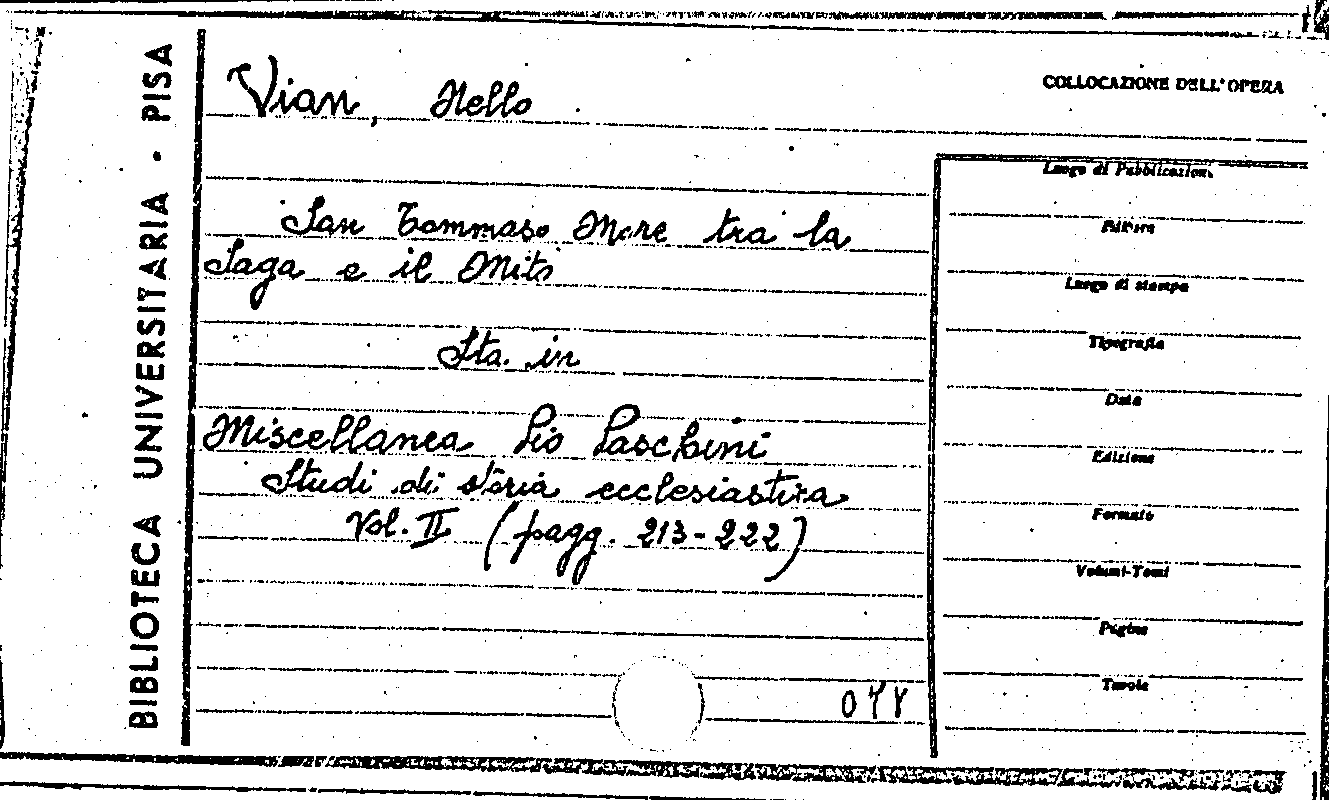 BIBLIOTECA UNIVERSITARIA · PISA
Vian, Nello
COLLOCAZIONE DELL'OPERA
San Tommaso More tra la
Saga e il Mito
Sta. in
Miscellanea Pio Paschini
Studi di storia ecclesiastica
Vol. II (pagg. 213-222)
Luogo di Pubblicazione
Editore
Luogo di stampa
Tipografia
Data
Edizione
Formato
Volumi-Tomi
Pagine
Tavole